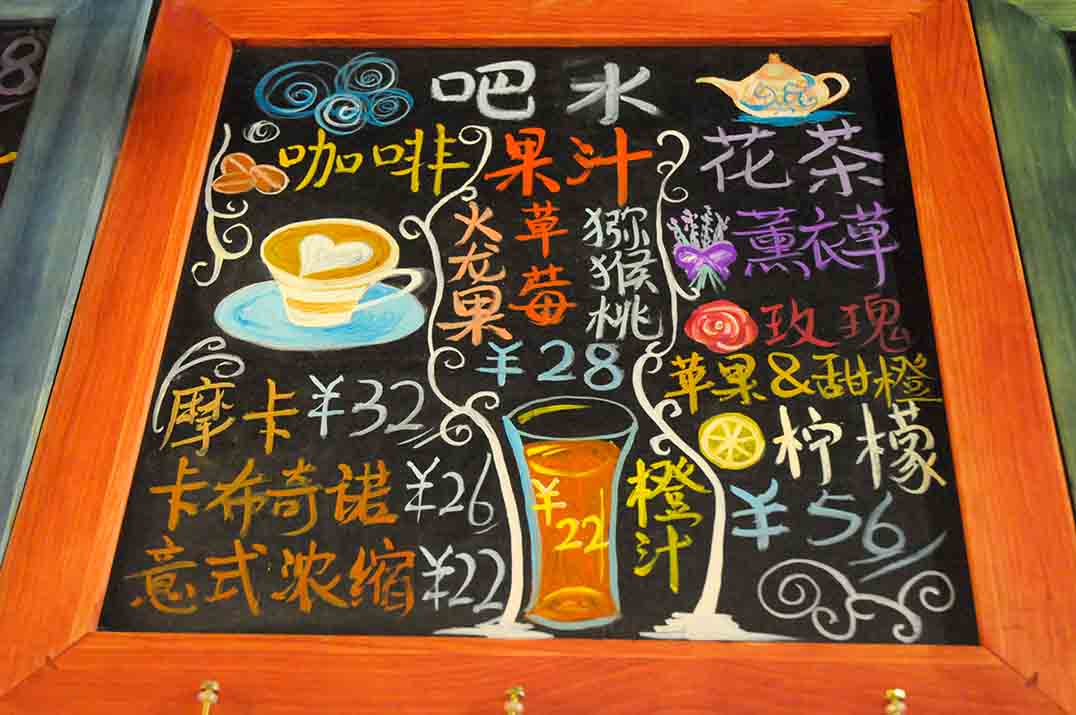 8
吧水
咖啡
摩卡 ¥32
卡布奇诺 ¥26
意式浓缩 ¥22
果汁
火龙果
草莓
猕猴桃
¥28
¥22
橙汁
花茶
薰衣草
玫瑰
苹果&甜橙
柠檬
¥56